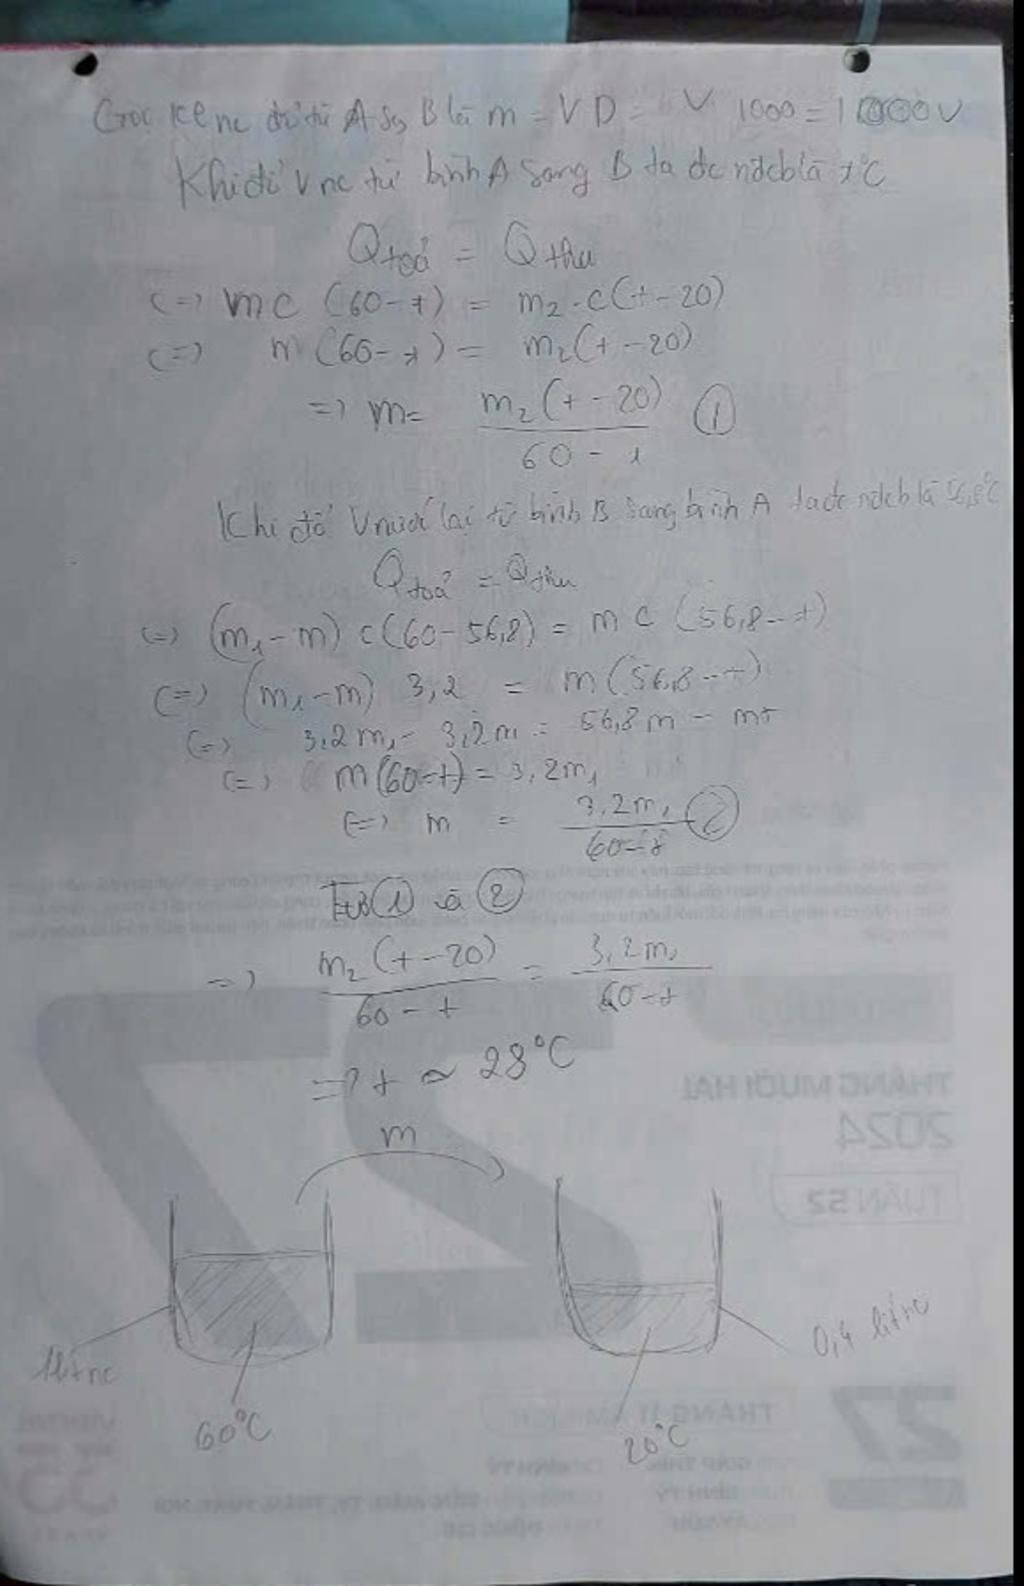 Gọi KL nc đổ từ A sg B là m = VD = V 1000 = 1000V
Khi đổ V nc từ bình A sang B ta đc nđcb là t°C
Qtoả = Qthu
(=) mc (60-t) = m2.c(t-20)
(=) m(60-t) = m2(t-20)
=) m = m2(t-20) / 60-t (1)
Khi đổ V nước lại từ bình B sang bình A ta đc nđcb là 56,8°C
Qtoả = Qthu
(=) (m1-m) c(60-56,8) = mc (56,8-t)
(=) (m1-m) 3,2 = m(56,8-t)
(=) 3,2m1 - 3,2m = 56,8m - mt
(=) m(60-t) = 3,2m1
(=) m = 3,2m1 / 60-t (2)
(1) và (2)
=) m2(t-20) / 60-t = 3,2m1 / 60-t
=) t ≈ 28°C
m
1 lít nc
0,4 lít nc
60°C
20°C
THÁNG MƯỜI HAI
2024
TUẦN 52
27
27
35